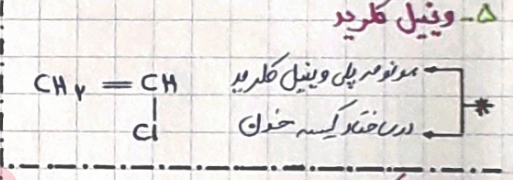 ۵- وینیل کلرید
CH₂ = CH
Cl
* مونومر پلی وینیل کلرید
در ساختار کیسه خون